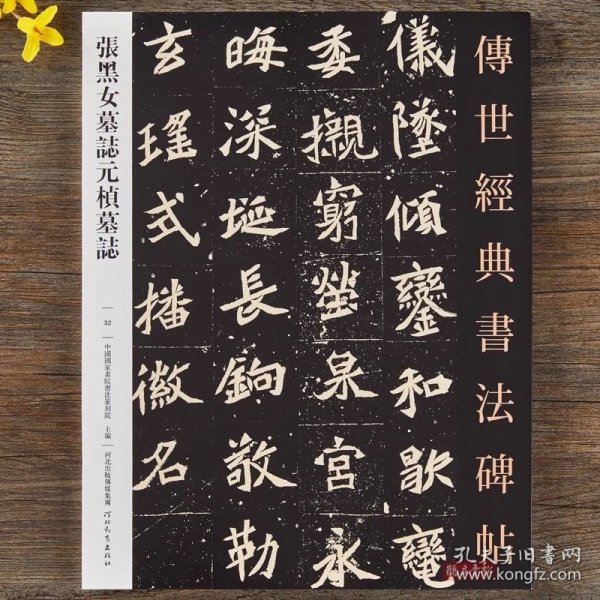 傳世經典書法碑帖
儀墜傾鑾和歇
委櫬窮塋泉宮永
晦深埏長敬勒
玄瑤式播徽名
張黑女墓誌元楨墓誌
32
中國國家畫院書法篆刻院 主編
河北出版傳媒集團 河北教育出版社
孔夫子旧书网
www.kongfz.com